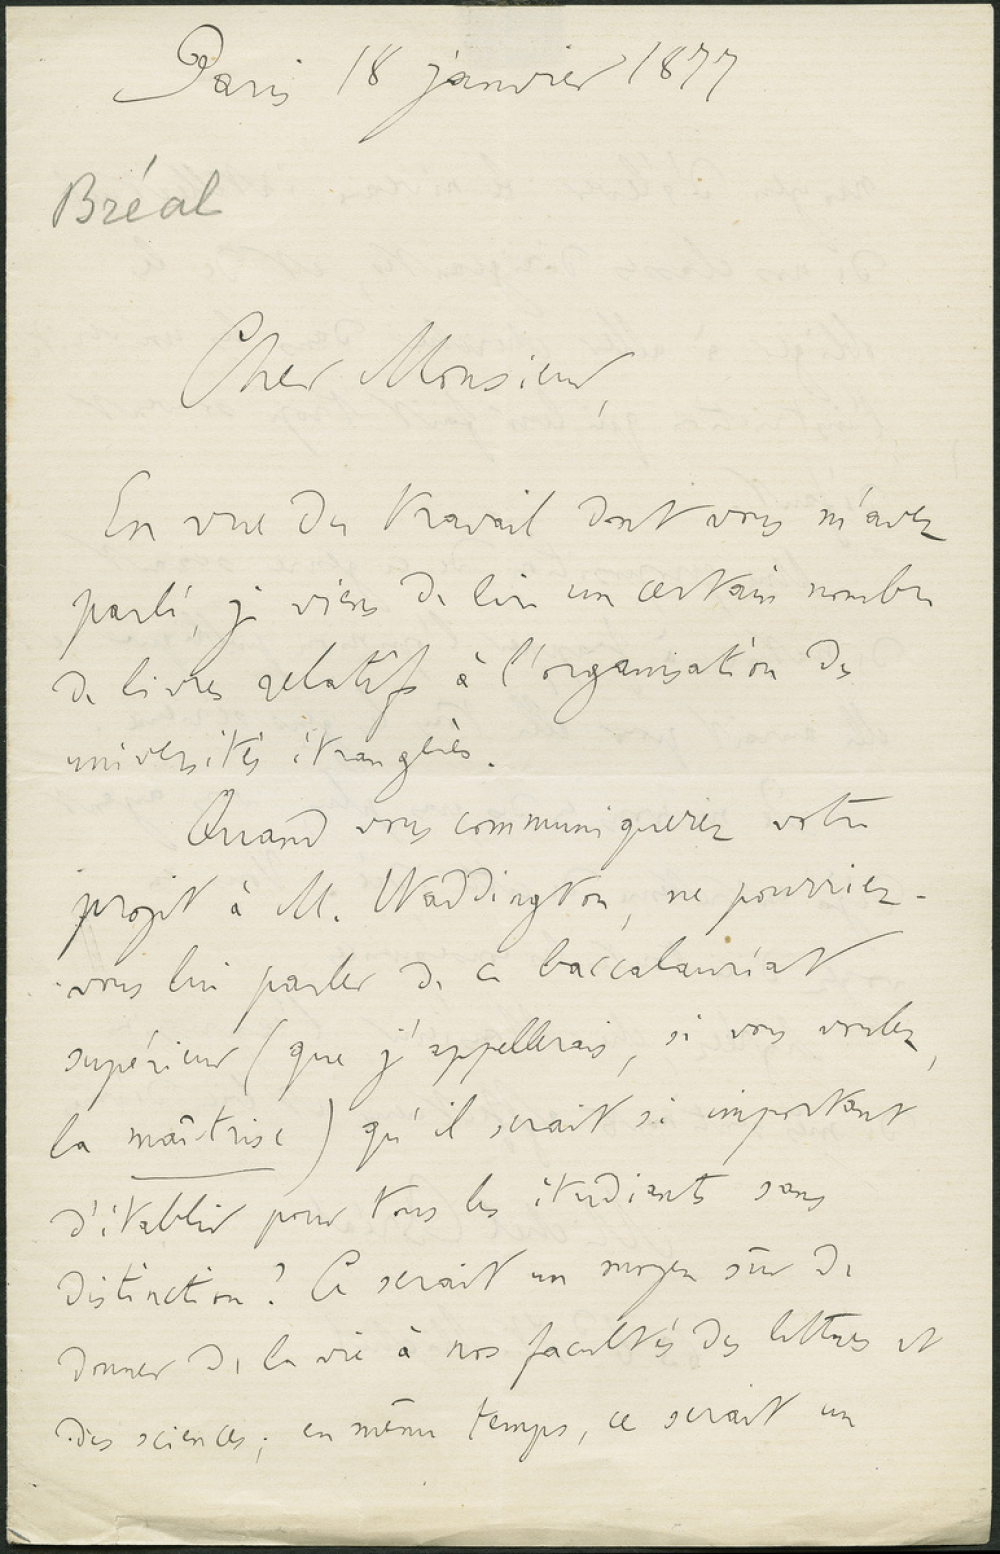 Paris 18 janvier 1877
Bréal
Cher Monsieur,
En vue du travail dont vous m'avez
parlé, je viens de lire un certain nombre
de livres relatifs à l'organisation des
universités étrangères.
Quand vous communiquerez votre
projet à M. Waddington, ne pourriez-
vous lui parler de ce baccalauréat
supérieur (que j'appellerais, si vous voulez,
la maîtrise) qu'il serait si important
d'établir pour tous les étudiants sans
distinction? Ce serait un moyen sûr de
donner de la vie à nos facultés des lettres et
des sciences; en même temps, ce serait un